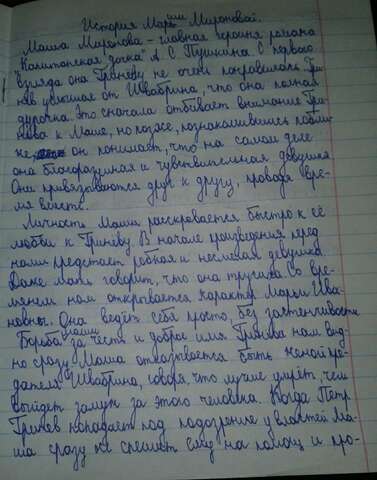 История Маши Мироновой.
Маша Миронова – главная героиня романа
"Капитанская дочка" А. С. Пушкина. С первого
взгляда она Гриневу не очень понравилась. Гри-
нёв услышал от Швабрина, что она полная
дурочка. Это сначала отбивает внимание Гри-
нева к Маше, но позже, познакомившись побли-
же он понимает, что на самом деле
она благоразумная и чувствительная девушка.
Они привязываются друг к другу, проводя вре-
мя вместе.
Личность Маши раскрывается быстро к её
любви к Гриневу. В начале произведения перед
нами предстаёт робкая и несмелая девушка.
Даже мать говорит, что она трусиха. Со вре-
менем нам открывается характер Марьи Ива-
новны. Она ведёт себя просто, без застенчивости
Борьба Маши за честь и доброе имя Гринева нам вид-
но сразу. Маша отказывается быть женой пре-
дателя Швабрина, говоря, что лучше умрёт, чем
выйдет замуж за этого человека. Когда Пётр
Гринёв попадает под подозрение у властей Ма-
ша сразу же спешит ему на помощь и про-